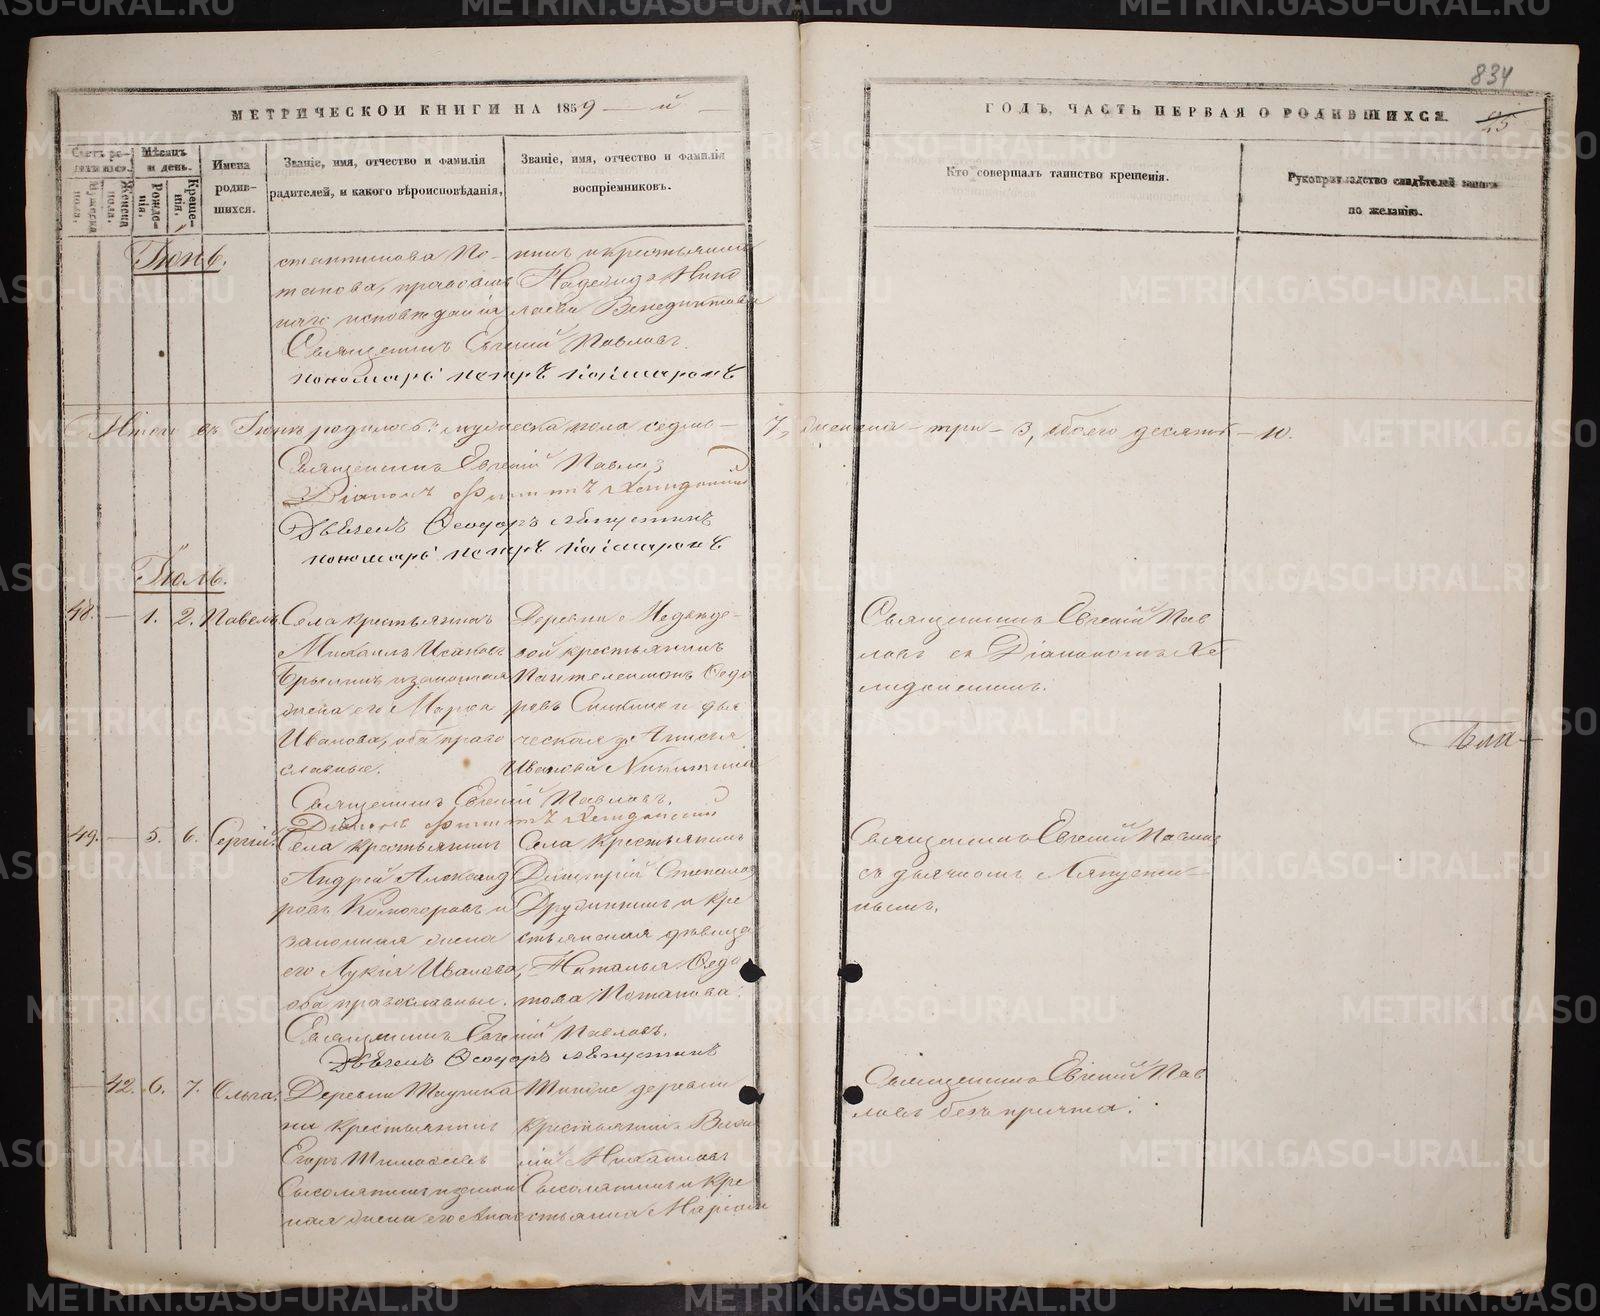 834
МЕТРИЧЕСКОЙ КНИГИ НА 1859 — й
ГОДЪ, ЧАСТЬ ПЕРВАЯ О РОДИВШИХСЯ.
Счетъ ро-
дившихся.
Мужеска
пола.
Женска
пола.
Мѣсяцъ
и день.
Рожде-
нія.
Креще-
нія.
Имена
родив-
шихся.
Званіе, имя, отчество и фамилія
родителей, и какого вѣроисповѣданія,
Званіе, имя, отчество и фамилія
воспріемниковъ.
Кто совершалъ таинство крещенія.
Рукоприкладство свидѣтелей записи
по желанію.
Іюнь.
стантинова По-
тапова, православ
наго исповѣданія
и крестьянина
Надежда Нико
лаева Венедиктова
Священникъ Евгеній Павловъ.
пономарь Петръ
Итого въ Іюнѣ родилось: мужеска пола седмь — 7, женска — три — 3, обоего десять — 10.
Священникъ Евгеній Павловъ
Діаконъ Хелидонскій
Дьячекъ Ѳеодоръ Ляпустинъ
пономарь Петръ
Іюль.
48. — 1. 2. Павелъ
Села крестьянинъ
Михаилъ Исаковъ
Брылинъ и законная
жена его Марѳа
Иванова, оба право
славные.
Деревни Медвѣде-
вой крестьянинъ
Пантелеимонъ Ѳедо
ровъ
Иванова Никитина
Священникъ Евгеній Пав
ловъ съ Діакономъ Хе
лидонскимъ.
Бла-
Священникъ Евгеній Павловъ.
Діаконъ Хелидонскій
49. — 5. 6. Сергій.
Села крестьянинъ
Андрей Александ
ровъ Комогоровъ и
законная жена
его Лукія Иванова,
оба православные.
Села крестьянинъ
Димитрій Степанов
Дружининъ и кре
стьянская дѣвица
Наталья Ѳедо
това Потапова.
Священникъ Евгеній Павловъ
съ дьячкомъ Ляпусти-
нымъ.
Священникъ Евгеній Павловъ.
Дьячекъ Ѳеодоръ Ляпустинъ
— 42. 6. 7. Ольга.
Деревни
ки крестьянинъ
Егоръ Тимофеевъ
Сысолятинъ и закон
ная жена его Анас
Тойже деревни
крестьянинъ Васи
лій Михайловъ
Сысолятинъ и кре
стьянка Марія
Священникъ Евгеній Пав
ловъ безъ причта.